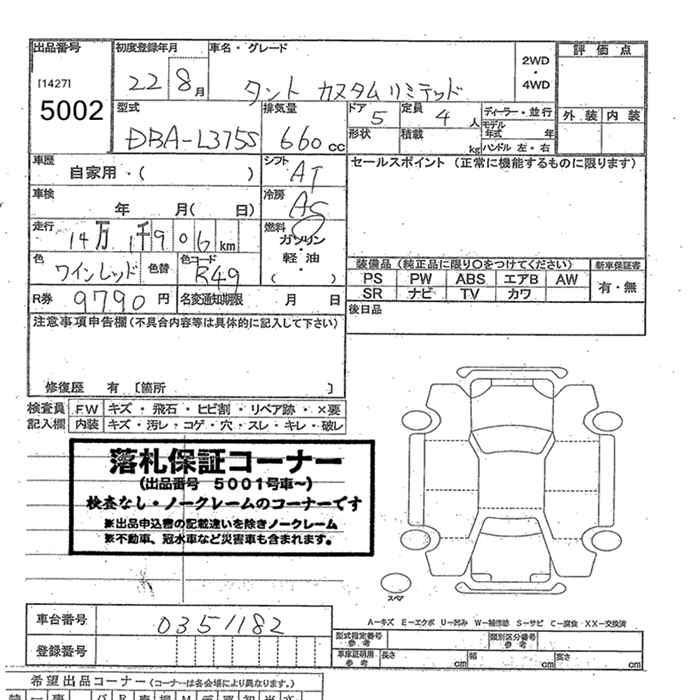 出品番号 初度登録年月 車名・グレード 評価点
[1427] 22 8月 タント カスタムリミテッド 2WD・4WD
5002 型式 排気量 ドア 5 定員 4人 ディーラー・並行 外装 内装
DBA-L375S 660cc 形状 積載 kg モデル年式 年
ハンドル 左・右
車歴 自家用・( ) シフト AT セールスポイント(正常に機能するものに限ります)
車検 年 月( 日) 冷房
走行 14万 1千906km 燃料 ガソリン・軽油・( )
色 ワインレッド 色替 色コード R49 装備品(純正品に限り〇をつけてください) 新車保証書
PS PW ABS エアB AW 有・無
R券 9790円 名変通知期限 月 日 SR ナビ TV カワ
注意事項申告欄(不具合内容等は具体的に記入して下さい) 後日品
修復歴 有 〔箇所 〕
検査員 FW キズ・飛石・ヒビ割・リペア跡・×要
記入欄 内装 キズ・汚レ・コゲ・穴・スレ・キレ・破レ
落札保証コーナー
(出品番号 5001号車~)
検査なし・ノークレームのコーナーです
※出品申込書の記載違いを除きノークレーム
※不動車、冠水車など災害車も含まれます。
スペア
車台番号 0351182 A-キズ E-エクボ U-凹み W-補修跡 S-サビ C-腐食 XX-交換済
登録番号 型式指定番号 参考 類別区分番号 参考
車庫証明用 参考 長さ cm 幅 cm 高さ cm
希望出品コーナー(コーナーは各会場により異なります)